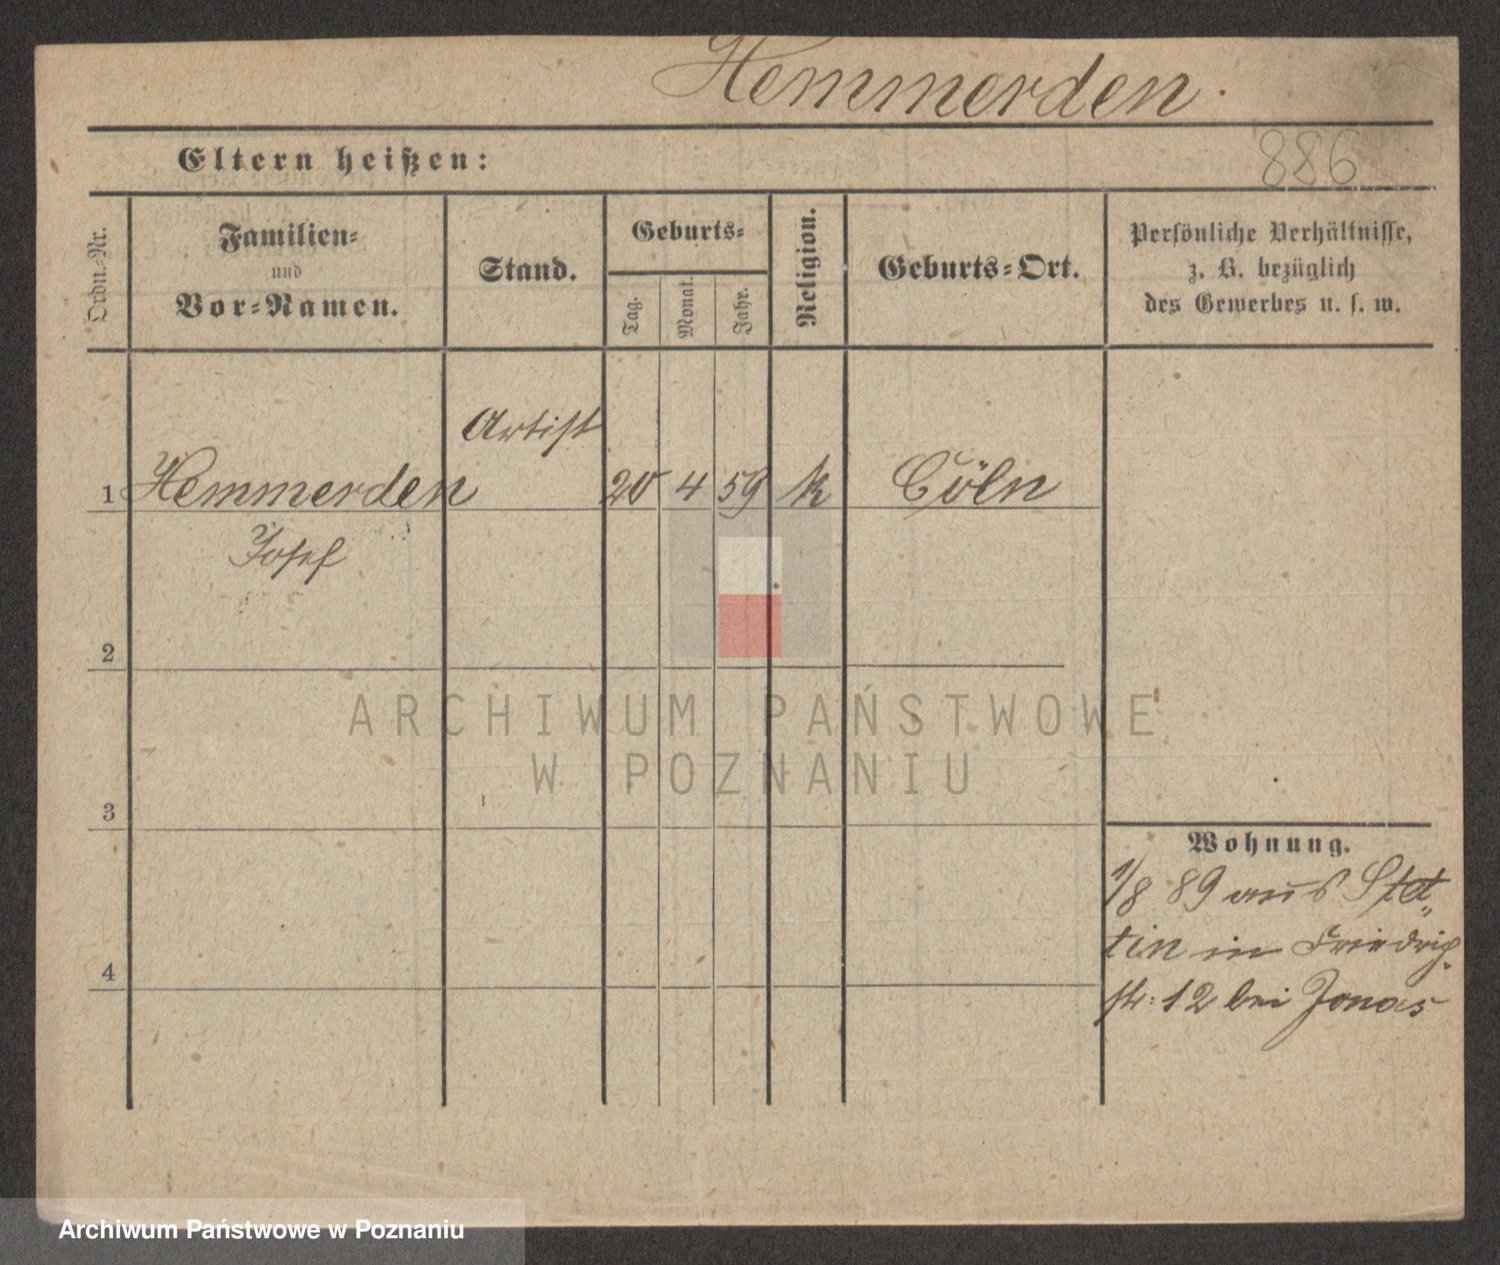 Hemmerden.
Eltern heißen:
886
Ordn.-Nr.
Familien-
und
Vor-Namen.
Stand.
Geburts-
Tag.
Monat.
Jahr.
Religion.
Geburts-Ort.
Persönliche Verhältnisse,
z. B. bezüglich
des Gewerbes u. s. w.
Artist
1 Hemmerden 20 4 59 k Cöln
Josef
2
ARCHIWUM PAŃSTWOWE
W POZNANIU
3
Wohnung.
1/8 89 aus Stet„
tin in Friedrich
str: 12 bei Jonas
4
Archiwum Państwowe w Poznaniu